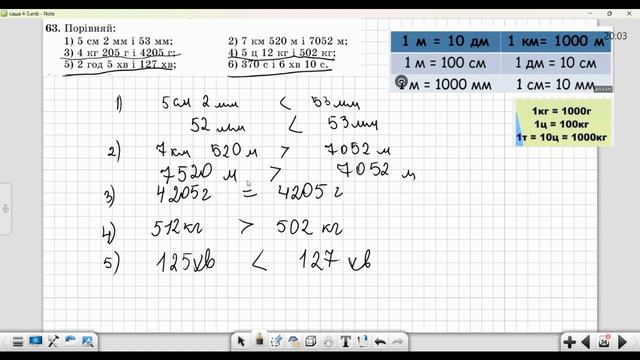 саша 4-5.enb - Note
20:03
63. Порівняй:
1) 5 см 2 мм і 53 мм; 2) 7 км 520 м і 7052 м;
3) 4 кг 205 г і 4205 г; 4) 5 ц 12 кг і 502 кг;
5) 2 год 5 хв і 127 хв; 6) 370 с і 6 хв 10 с.
1 м = 10 дм 1 км= 1000 м
1 м = 100 см 1 дм = 10 см
1 м = 1000 мм 1 см= 10 мм
1кг = 1000г
1ц = 100кг
1т = 10ц = 1000кг
1) 5 см 2 мм < 53 мм
52 мм < 53 мм
2) 7 км 520 м > 7052 м
7520 м > 7052 м
3) 4205 г = 4205 г
4) 512 кг > 502 кг
5) 125 хв < 127 хв